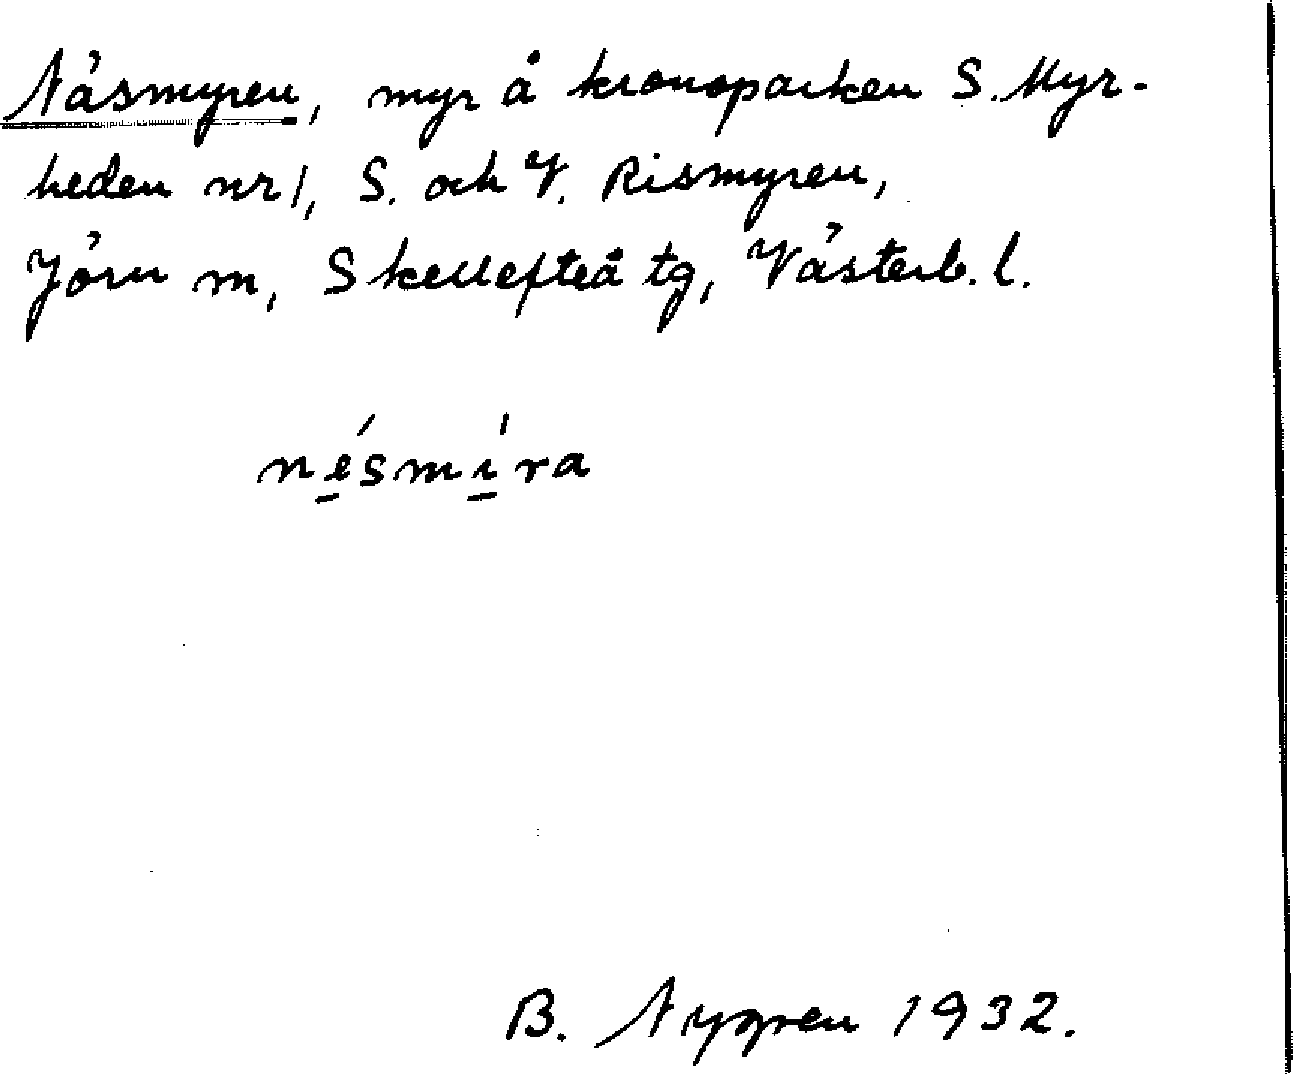 Näsmyren, myr å kronoparken S. Myr-
heden nr 1, S. och V. Rismyren,
Jörn m, Skellefteå tg, Västerb. l.
nésmíra
B. Nygren 1932.